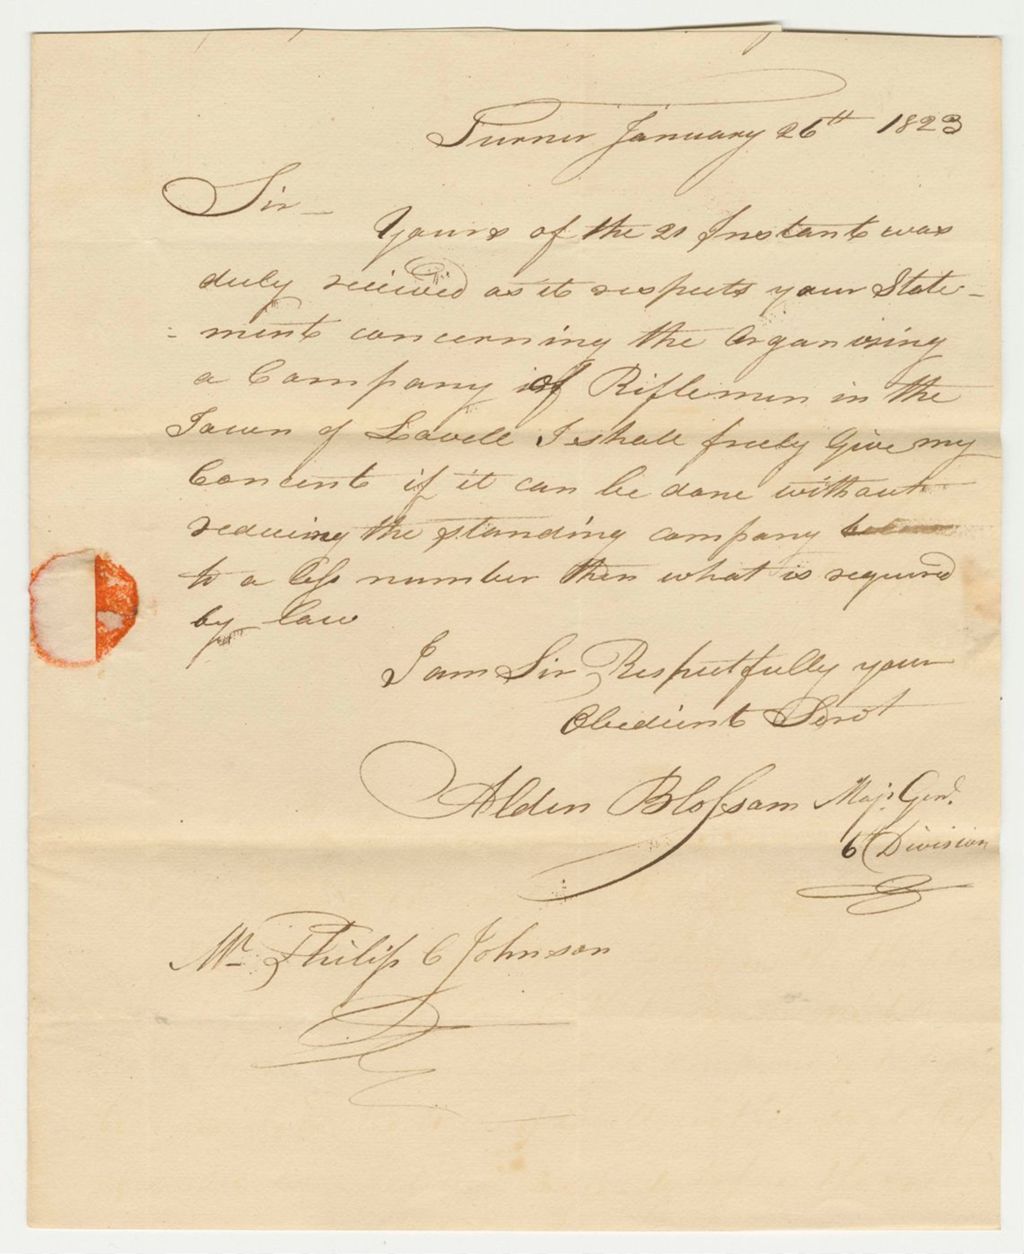 Turner January 26th 1823
Sir —
Yours of the 21 Instant was
duly received as it respects your State-
-ment concerning the Organising
a Company of Riflemen in the
Town of Lovell I shall freely Give my
Concent if it can be done without
reducing the standing company
to a less number then what is required
by law
I am Sir Respectfully your
Obedient Servt
Alden Blossom Majr Genl.
6th Division
Mr Philip C Johnson